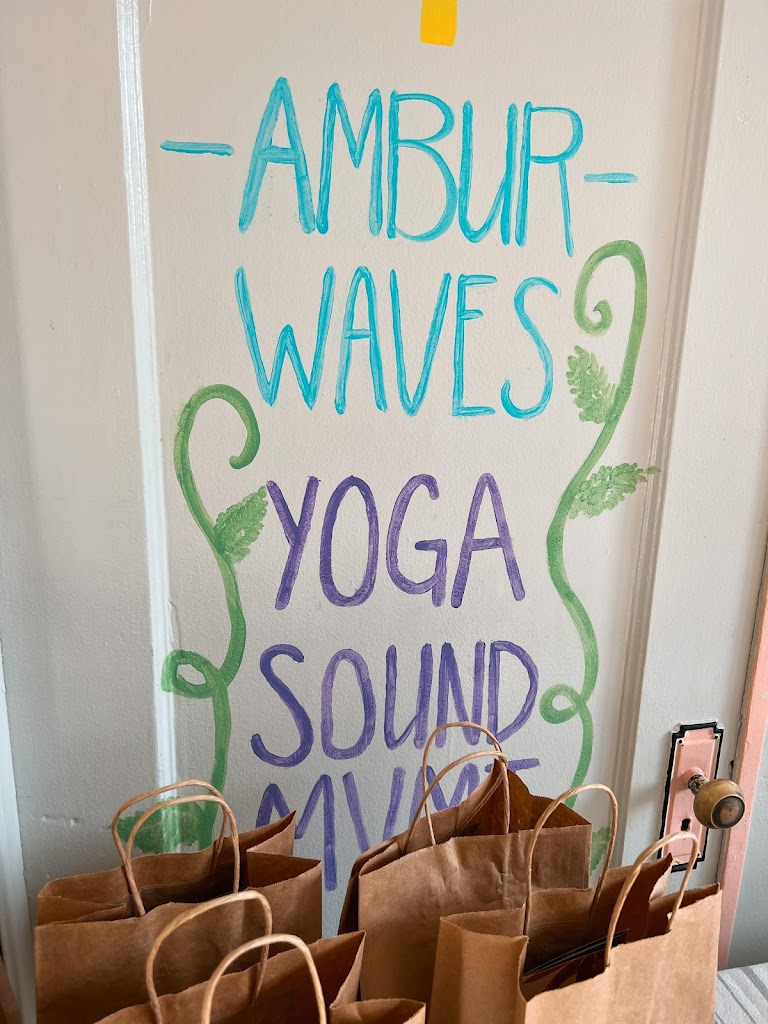 - AMBUR -
WAVES
YOGA
SOUND
MVMT